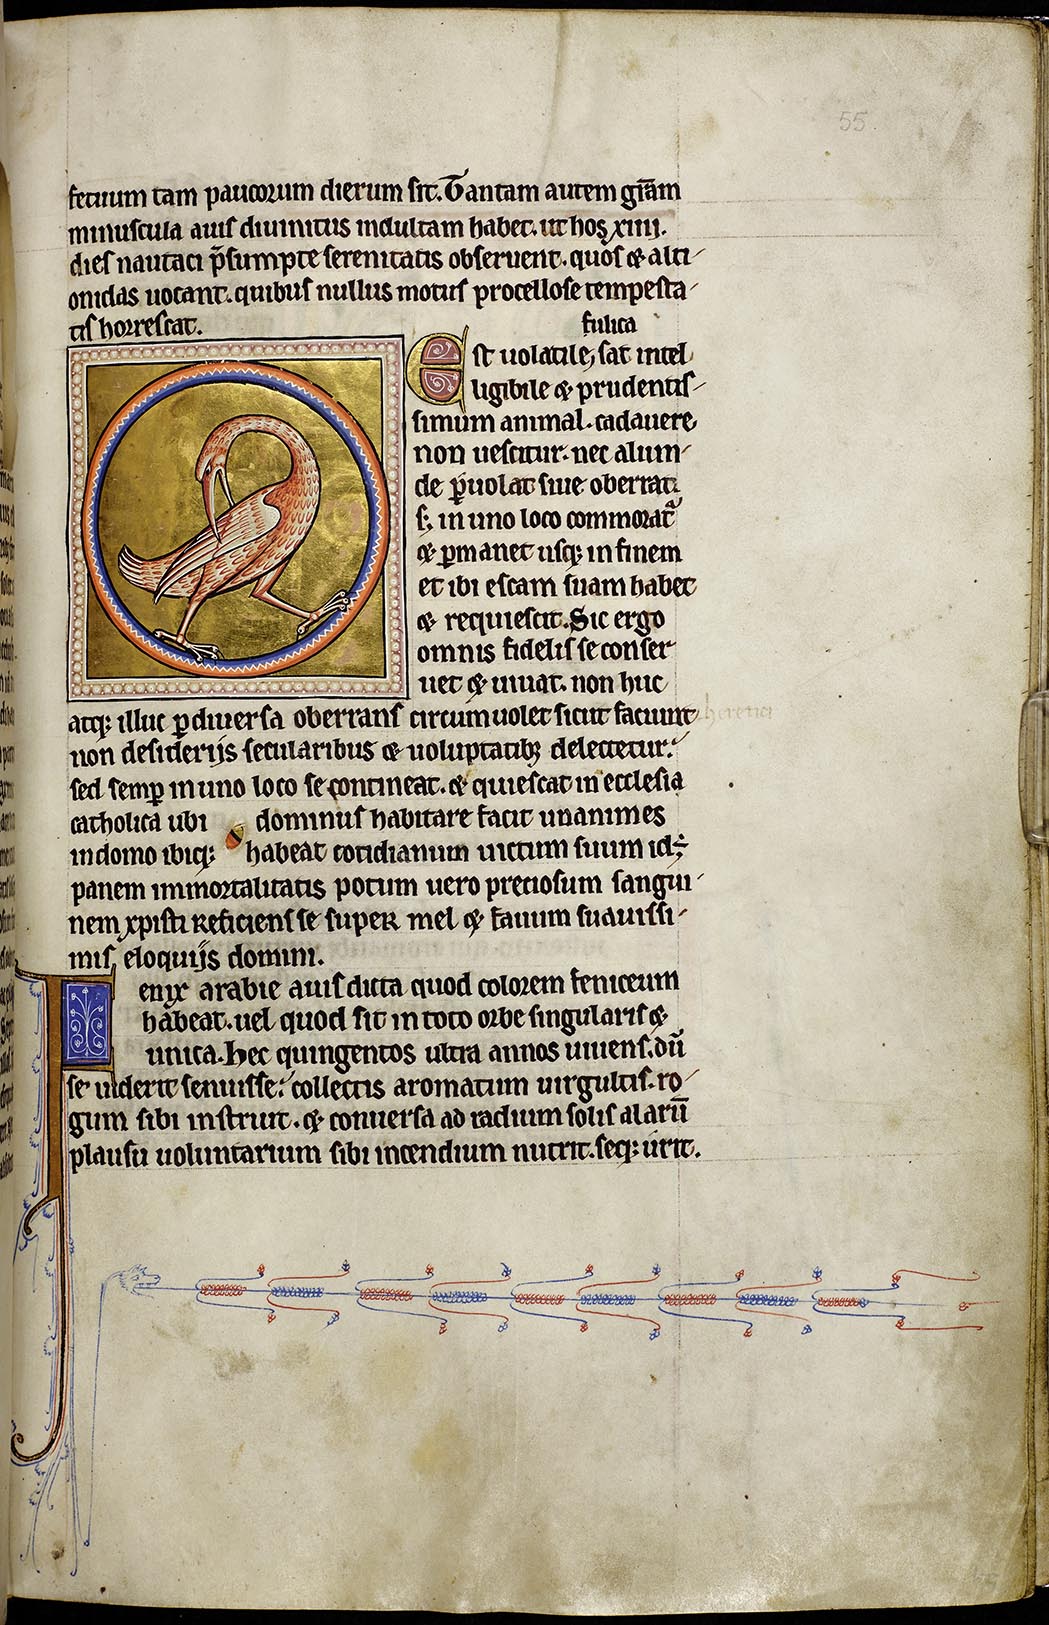 55
fetuum tam paucorum dierum sit. Tantam autem gr̄am
minuscula auis diuinitus indultam habet. ut hos xiiii.
dies nautaci p̄sumpte serenitatis obseruent. quos & alti-
onidas uocant. quibus nullus motus procellose tempesta-
tis horrescat.
fulica
Est uolatile; sat intel
ligibile & prudentis-
simum animal. cadauere
non uescitur. nec aliun-
de p̱uolat siue oberrat.
s; in uno loco commorat᷑
& p̱manet usq; in finem
et ibi escam suam habet
& requiescit. Sic ergo
omnis fidelis se conser
uet & uiuat. non huc
atq; illuc p̱ diuersa oberrans circumuolet sicut faciunt heretici
non desiderijs secularibus & uoluptatib; delectetur.
sed semp̱ in uno loco se contineat. & quiescat in ecclesia
catholica ubi dominus habitare facit unanimes
in domo ibiq; habeat cotidianum uictum suum id;
panem immortalitatis potum uero preciosum sangui-
nem xpisti Reficiens se supeR mel & fauum suauissi-
mis eloquijs domini.
Fenix arabie auis dicta quod colorem feniceum
habeat. uel quod sit in toto orbe singularis &
unica. hec quingentos ultra annos uiuens. dū
se uiderit senuisse. collectis aromatum uirgultis. ro-
gum sibi instruit. & conuersa ad radium solis alarū
plausu uoluntarium sibi incendium nutrit. seq; urit.